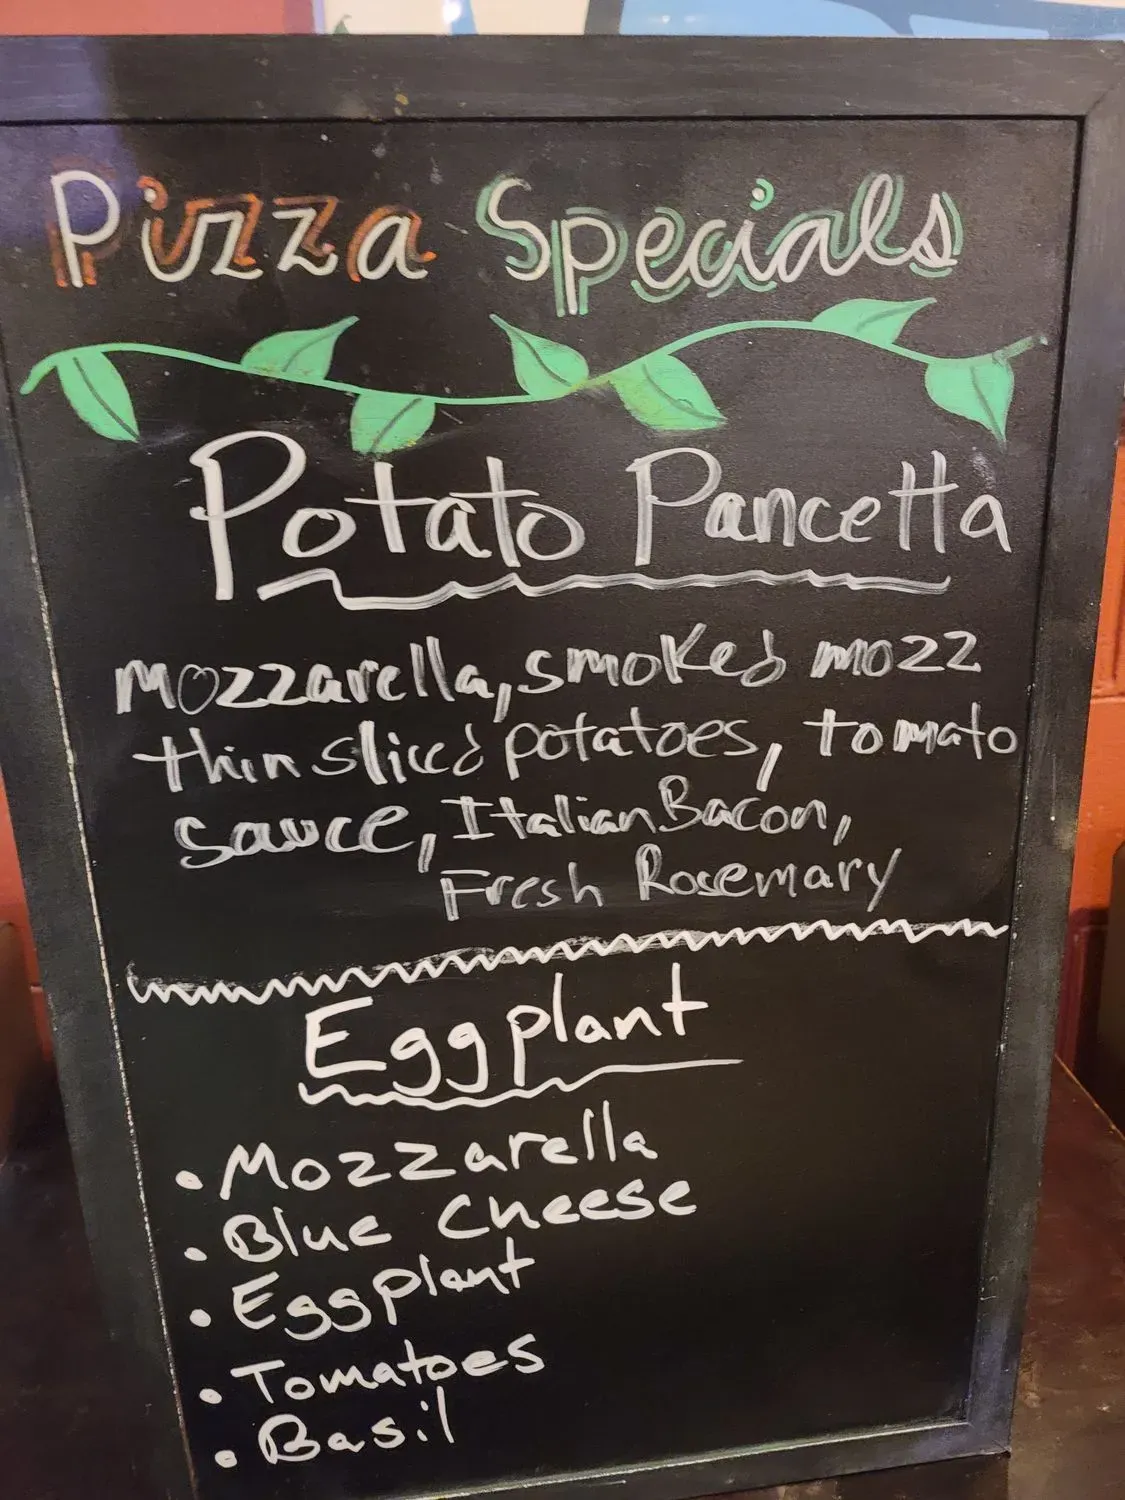 Pizza Specials
Potato Pancetta
mozzarella, smoked mozz
thin sliced potatoes, tomato
sauce, Italian Bacon,
Fresh Rosemary
Eggplant
• Mozzarella
• Blue Cheese
• Eggplant
• Tomatoes
• Basil